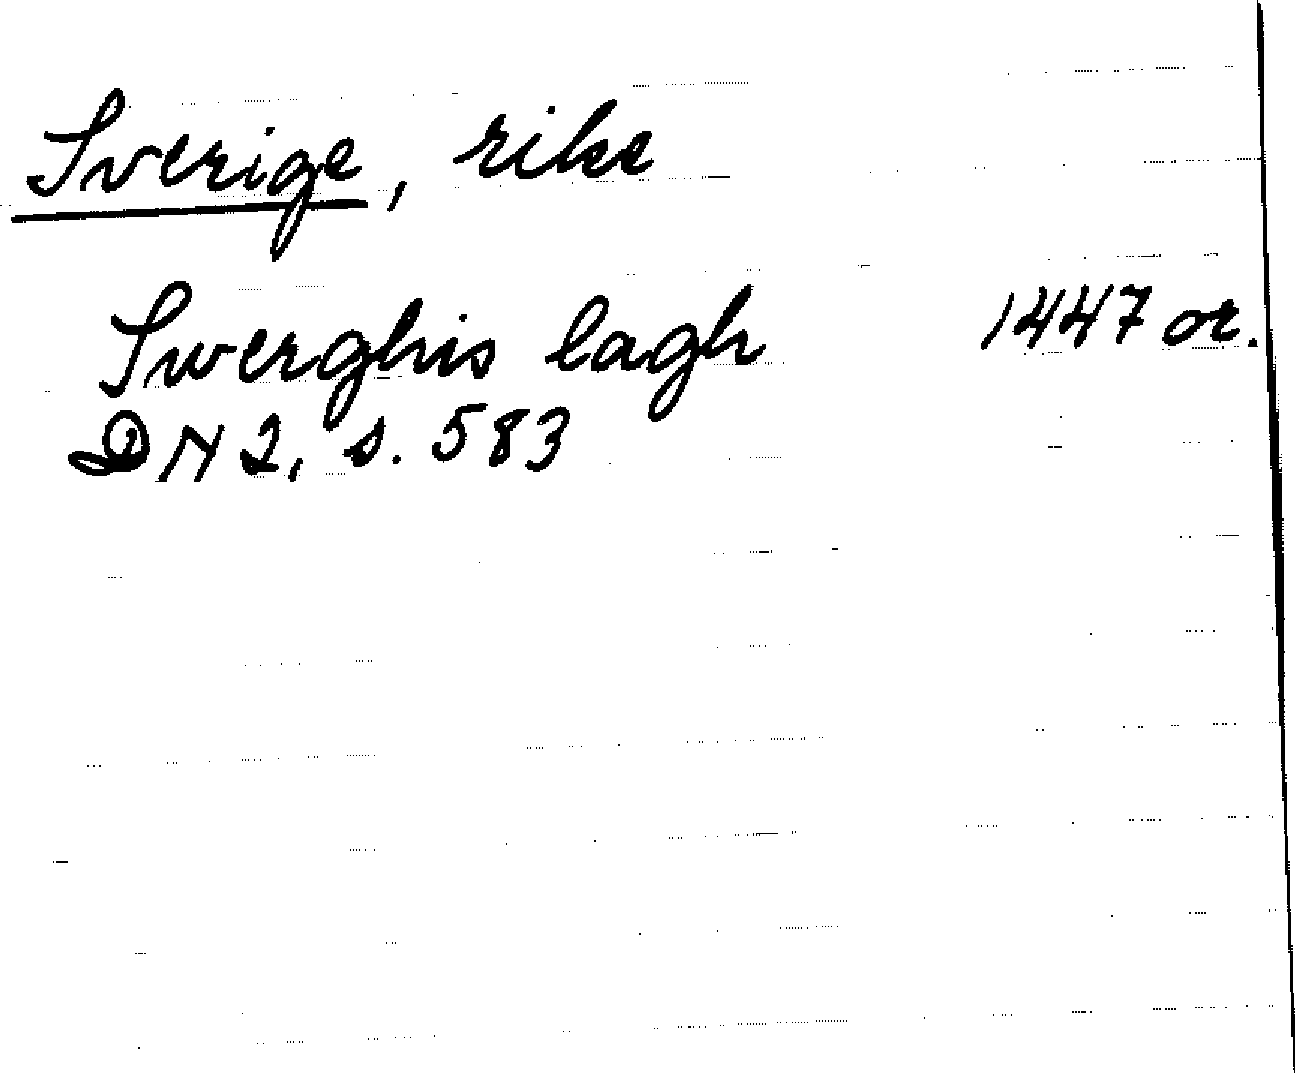 Sverige, rike
Swerghis lagh 1447 or.
DN 2, s. 583